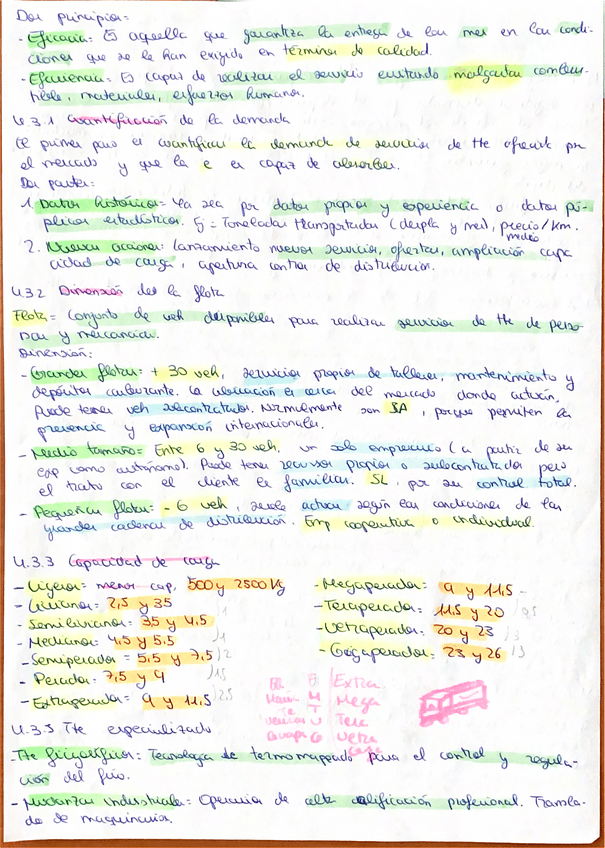 Dos principios:
- Eficacia: Es aquella que garantiza la entrega de las mer en las condi-
ciones que se le han exigido en términos de calidad.
- Eficiencia: Es capaz de realizar el servicio evitando malgastar combus-
tible, materiales, esfuerzos humanos.
4.3.1 Cuantificación de la demanda
El primer paso es cuantificar la demanda de servicios de tte ofrecida por
el mercado y que la e es capaz de absorber.
Dos partes:
1. Datos históricos: Ya sea por datos propios y experiencia o datos pú-
blicos estadísticos. Ej = Toneladas transportadas (despla y mes), precio/km.
medio
2. Nuevas acciones: Lanzamiento nuevos servicios, ofertas, ampliación capa
cidad de carga, apertura centros de distribución.
4.3.2 Dimensión de la flota
Flota = Conjunto de veh disponibles para realizar servicios de tte de perso
nas y mercancías.
Dimensión:
- Grandes flotas: + 30 veh, servicios propios de talleres, mantenimiento y
depósitos carburante. La ubicación es cerca del mercado donde actúan.
Puede tener veh subcontratados. Normalmente son SA, porque permiten la
presencia y expansión internacionales.
- Medio tamaño = Entre 6 y 30 veh, un solo empresario (a partir de su
exp como autónomo). Puede tener recursos propios o subcontratados pero
el trato con el cliente es familiar. SL, por su control total.
- Pequeñas flotas: - 6 veh, suele actuar según las condiciones de las
grandes cadenas de distribución. Emp cooperativa o individual.
4.3.3 Capacidad de carga
- Ligeros = menor cap, 500 y 2500 kg
- Livianos: 2,5 y 35
- Semilivianos: 35 y 4,5
- Medianos: 4,5 y 5.5
- Semipesados = 5,5 y 7,5
- Pesados: 7,5 y 9
- Extrapesados = 9 y 11,5
- Megapesados: 9 y 11,5
- Terapesados: 11.5 y 20
- Ultrapesados: 20 y 23
- Gigapesados: 23 y 26
E Extra
M Mega
T Tera
U Ultra
G
4.3.5 Tte especializado
- Tte frigoríficos: Tecnología de termomapeado para el control y regula-
ción del frío.
- Mudanzas industriales: Operarios de alta calificación profesional. Trasla-
do de maquinarias.